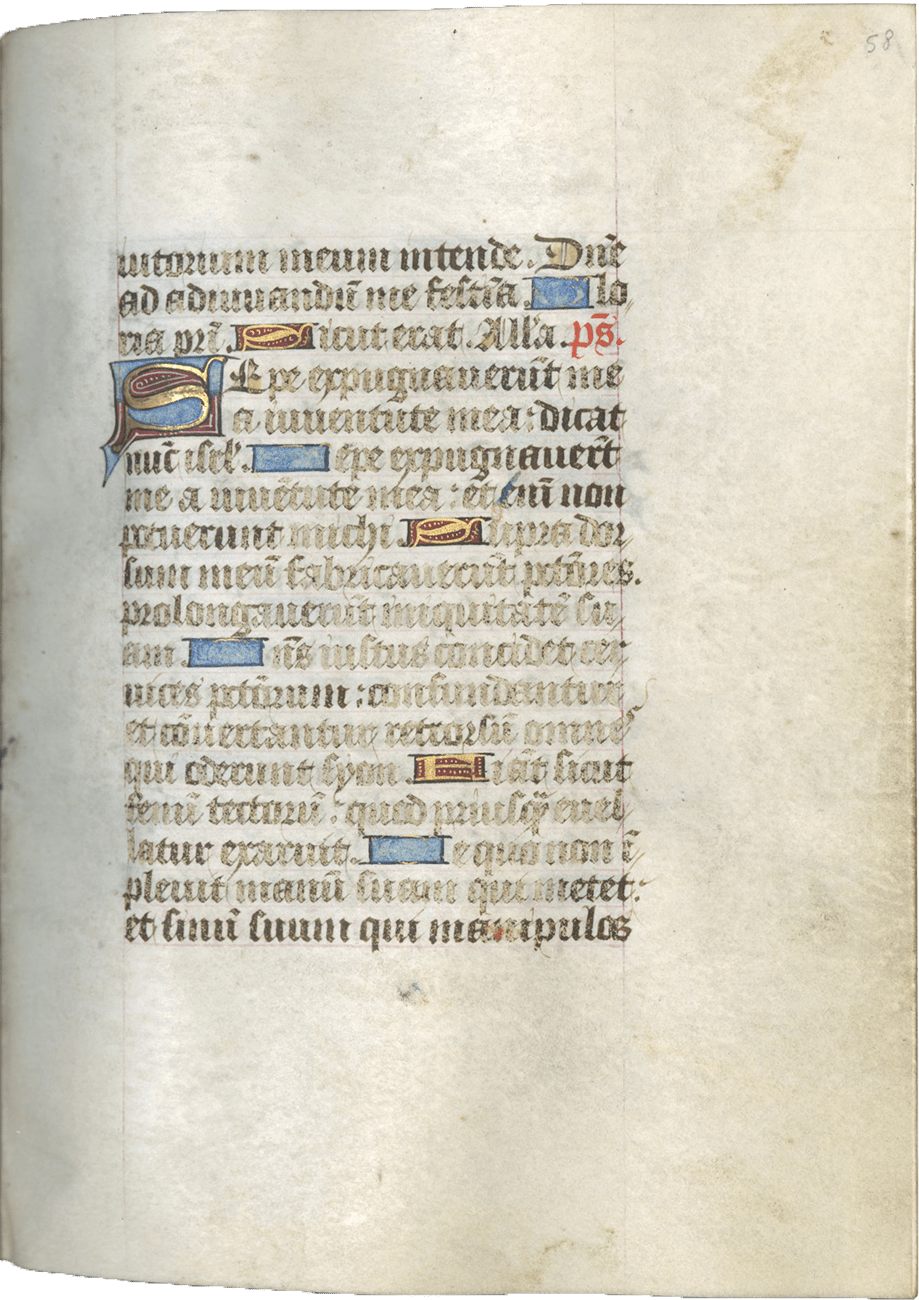 58
iutorium meum intende. Dn̄e
ad adiuuandū me festīa lo
ria pr̄i. Sicut erat. All'a. ps̄.
SEpe expugnauerūt me
a iuuentute mea: dicat
nūc isrl'. epe expugnauer̄t
me a iuuētute mea: eteniī non
potuerunt michi Supra dor
sum meū fabricauerūt pctōres.
prolongauerūt iniquitatē su
am. n̄s iustus concidet cer
uices pctōrum: confundantur
et cōuertantur retrorsū omnes
qui oderunt syon. Fiāt sicut
fenū tectorū: quod priusq̄ euel
latur exaruit. e quo non ī
pleuit manū suam qui metet:
et sinū suum qui manipulos